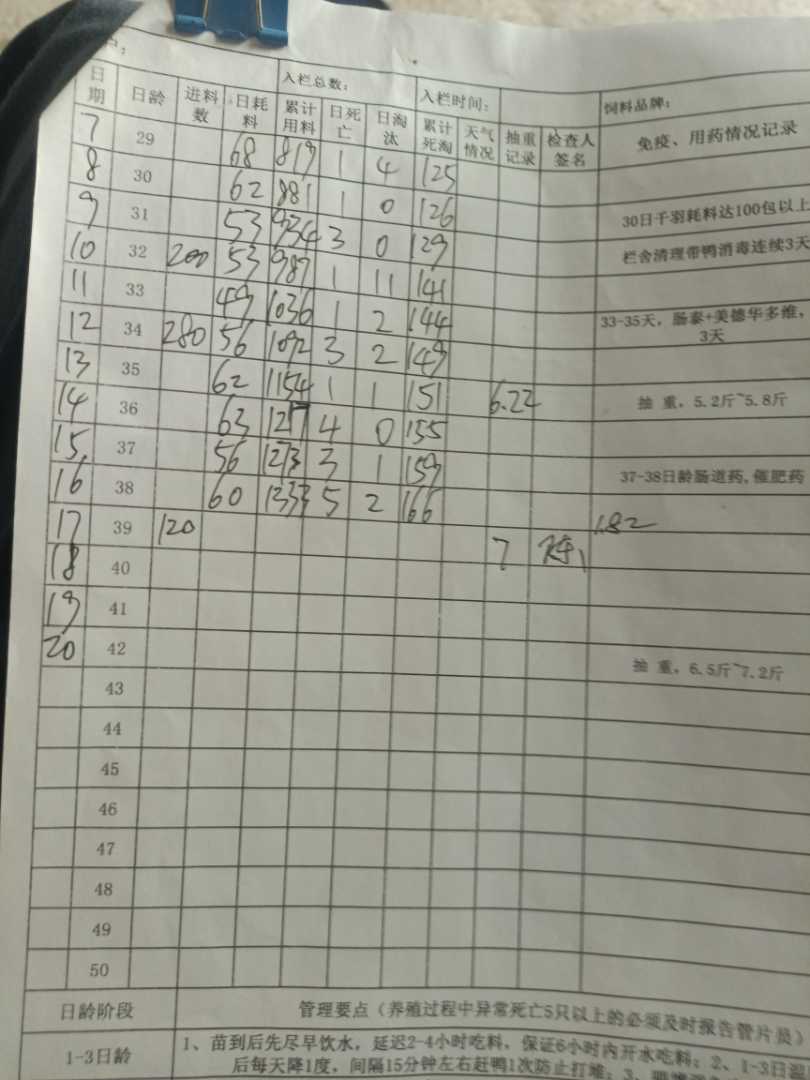 户：
入栏总数： 入栏时间： 饲料品牌：
日期 日龄 进料数 日耗料 累计用料 日死亡 日淘汰 累计死淘 天气情况 抽重记录 检查人签名 免疫、用药情况记录
7 29 68 819 1 4 125
8 30 62 881 1 0 126 30日千羽耗料达100包以上
9 31 53 934 3 0 129 栏舍清理带鸭消毒连续3天
10 32 200 53 987 1 11 141
11 33 49 1036 1 2 144 33-35天，肠泰+美德华多维，3天
12 34 280 56 1092 3 2 149
13 35 62 1154 1 1 151 6.22 抽 重，5.2斤~5.8斤
14 36 63 1217 4 0 155
15 37 56 1273 3 1 159 37-38日龄肠道药,催肥药
16 38 60 1333 5 2 166
17 39 120 7 1.82
18 40
19 41
20 42 抽 重，6.5斤~7.2斤
43
44
45
46
47
48
49
50
日龄阶段 管理要点（养殖过程中异常死亡5只以上的必须及时报告管片员）
1-3日龄 1、苗到后先尽早饮水，延迟2-4小时吃料，保证6小时内开水吃料；2、1-3日温
后每天降1度，间隔15分钟左右赶鸭1次防止打堆；3、